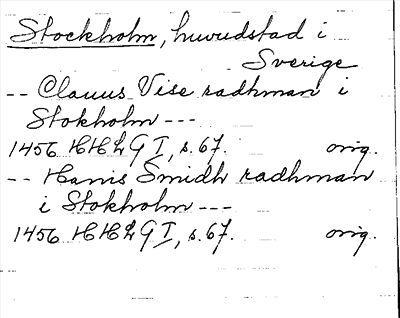 Stockholm, huvudstad i
Sverige
-- Clauus Vise radhman i
Stokholm ---
1456 HHLG I, s. 67. orig.
-- Hanis Smidh radhman
i Stokholm ---
1456 HHLG I, s. 67. orig.